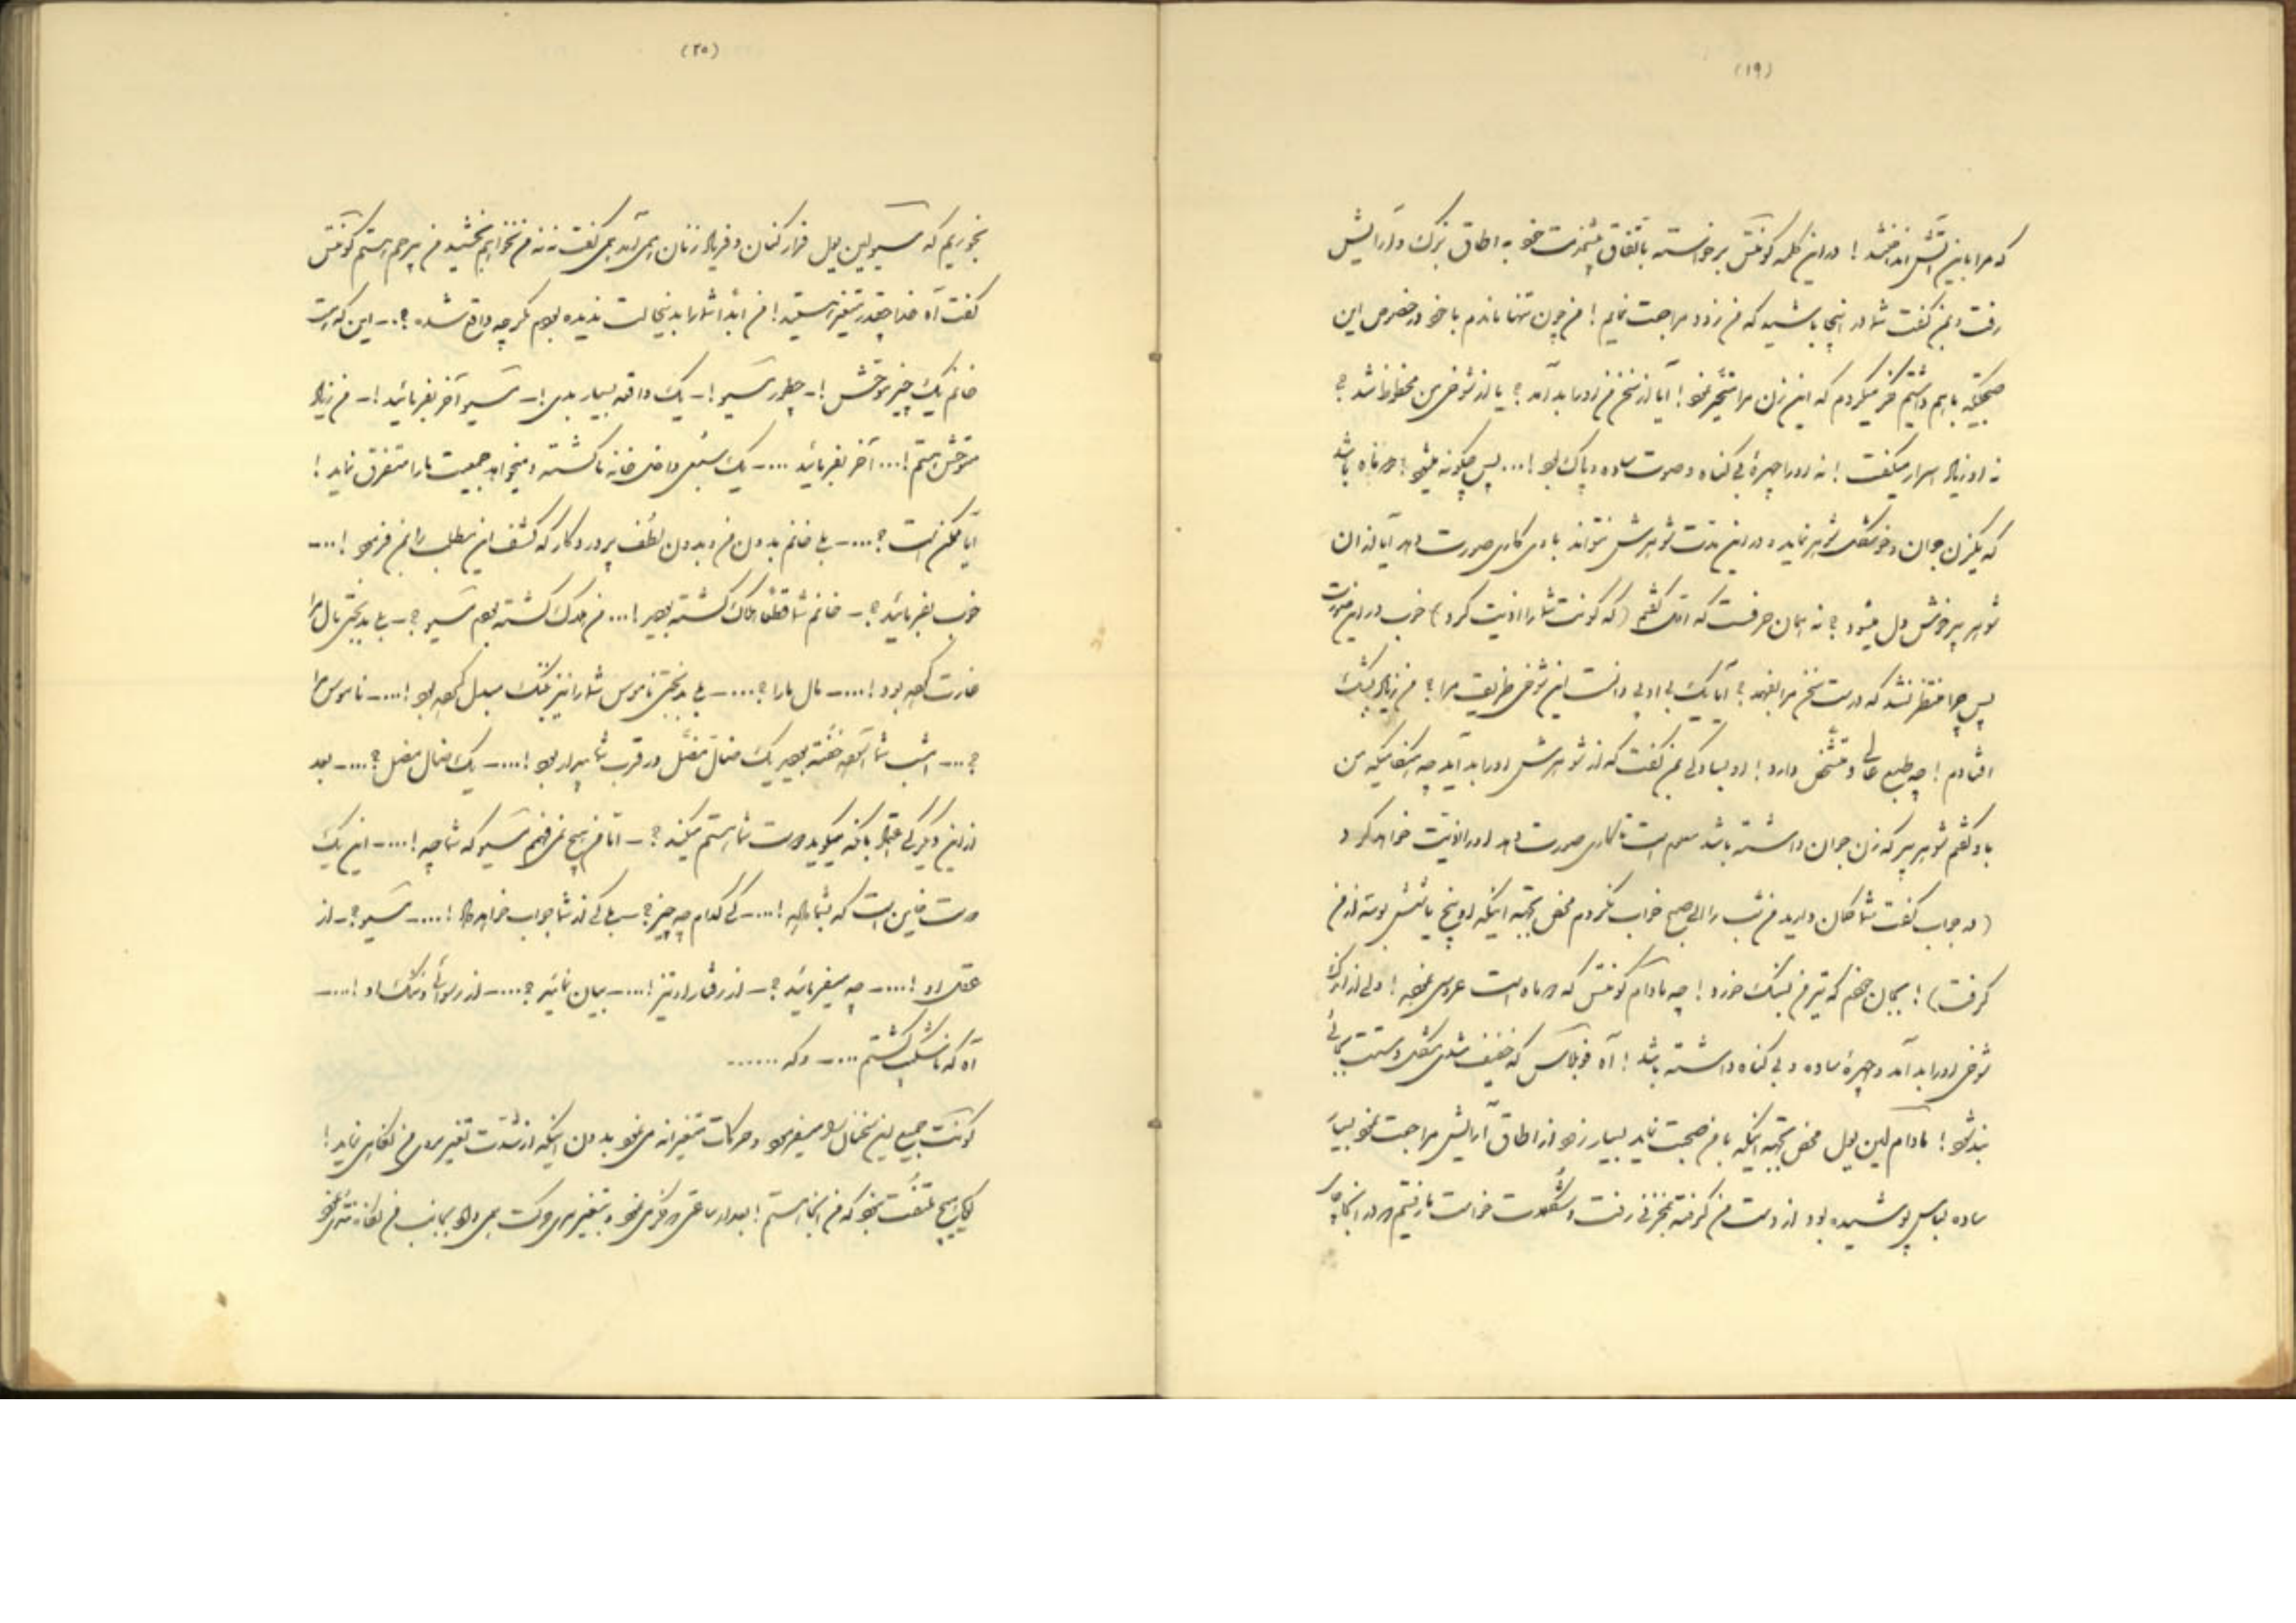 (۱۹)
که مرا باین آتش انداختند! در این کلمه کونتس برخواسته باتفاق پیشخدمت خود به اطاق بزک و آرایش
رفت و بمن گفت شما در اینجا باشید که من زود مراجعت نمایم! من چون تنها ماندم با خود در خصوص این
صحبتیکه باهم داشتیم فکر میکردم که این زن مرا متحیر نمود! آیا از سخن من او را بد آمد؟ یا از شوخی من محظوظ شد؟
نه او زیاد اسرار میگفت! نه او را چهرهٔ بی گناه و صورت ساده و پاک بود!... پس چگونه میشود
که یکزن جوان و خوشگل شوهر نماید و در این مدت شوهرش نتواند با وی کاری صورت دهد آیا از آن
شوهر پیر خوش دل میشود؟ نه همان حرفست که اول گفتم (که کونت شما را اذیت کرد) خوب در این صورت
پس چرا منتظر نشد که درست سخن مرا بفهمد؟ آیا یک بی ادبی دانست این شوخی ظریف مرا؟ من زیاد بشک
افتادم! چه طبع عالی و مشخص دارد! او بسادگی بمن گفت که از شوهرش او را بد آید چه هنگامیکه من
باو گفتم شوهر پیر که زن جوان داشته باشد معلوم است تا کاری صورت دهد او را اذیت خواهد کرد
(در جواب گفت شما گمان دارید من شب را الی صبح خواب نکردم محض بجهة اینکه او پنج یا شش بوسه از من
گرفت)! بگمان خودم که تیر من بسنگ خورد! چه مادام کونتس که ماه است عروسی نموده! ولی از
شوخی او را بد آمد و چهرهٔ ساده و بی گناه داشته باشد! آه فوبلاس که خفیف شدی
بند شو! مادام لین یول محض بجهة اینکه با من صحبت نماید بسیار زود از اطاق آرایش مراجعت نمود
ساده لباس پوشیده بود از دست من گرفته بمخزنی رفت و خواست تا رفتیم در آنجا
(۲۰)
بخوریم که مسیو لین یول فرار کنان و فریاد زنان همی آمد همی گفت نه نه من نخواهم بخشید من بیرحم هستم کونتس
گفت آه خدا چقدر متغیر هستید! من ابداً شما را بدینحالت ندیده بودم مگر چه واقع شده؟.. این که است
خانم یک چیز موحش!- چطور مسیو!- یک واقعه بسیار بدی!- مسیو آخر بفرمائید!- من زیاد
متوحش هستم!... آخر بفرمائید....- یک سَبُعی داخل خانه ما گشته و میخواهد جمعیت ما را متفرق نماید!
آیا ممکن است؟....- بلی خانم بدون من و بدون لُطف پروردگار که کشف این مطلب را بمن فرمود!....
خوب بفرمائید؟- خانم شما قطعاً هلاک گشته بودید!... من هلاک گشته بودم مسیو؟- بلی بدبختی مال مرا
غارت کرده بود!....- مال ما را؟....- بلی بدبختی ناموس شما را نیز بننگ مبدل کرده بود!....- ناموس مرا
؟....- امشب شما آسوده خفته بودید یک ضمال مضل در قرب شما بیدار بود!....- یک ضمال مضل؟....- بعد
از این دیگر کی اعتماد بآنکه میگوید دوست شما هستم میکند؟- اما من هیچ نمی فهمم مسیو که شما چه!....- این یک
دوست خاین است که بشما داده!....- کی کدام چه چیز؟- بلی کی از شما جواب خواهد داد!....- مسیو؟- از
عقل او!....- چه میفرمائید؟- از رفتار او نیز!....- بیان نمائید؟....- از رسوائی و ننگ او!....-
آه که تا شکسته گشتم....- و که ......
کونت جمیع این سخنان را میفرمود و حرکات متغیرانه می نمود بدون اینکه از شدت تغیر بروی من نگاهی نماید!
گویا هیچ ملتفت نبود که من آنجا هستم! بعد از ساعتی فکری نمود و متغیر می حرکت همی داد بجانب من نگاه